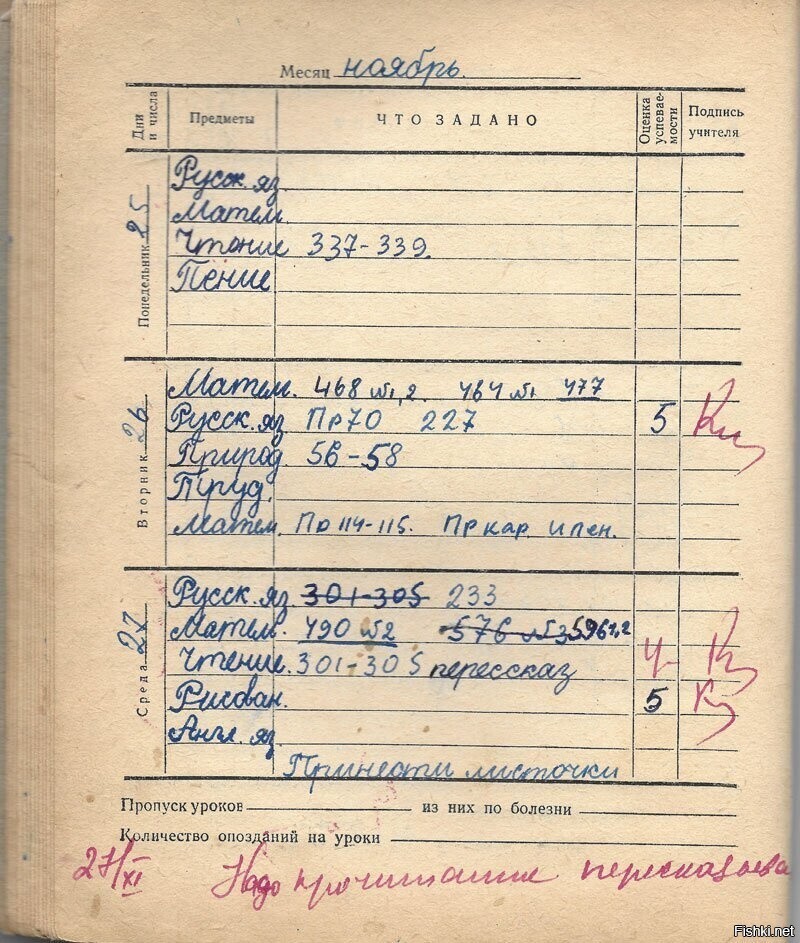 Месяц ноябрь.
Дни и числа Предметы ЧТО ЗАДАНО Оценка успевае-мости Подпись учителя
Понедельник 25
Русск. яз.
Матем.
Чтение 337-339.
Пение
Вторник 26
Матем. 468 №1,2. 464 №1 477
Русск. яз. Пр70 227 5
Природ. 56-58
Труд.
Матем. По 114-115. Пр кар. и лен.
Среда 27
Русск. яз. 301-305 233
Матем. 490 №2 576 №3 596 1,2
Чтение. 301-305 перессказ 4-
Рисован. 5
Англ. яз.
Принести листочки
Пропуск уроков из них по болезни
Количество опозданий на уроки
27/XI Надо прочитанное пересказыва
Fishki.net